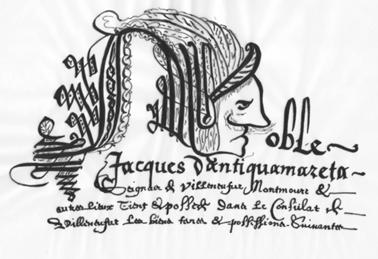 Noble
Jacques dantiquamareta
Seigneur de Villeneufue Montmaure &
autres lieux Tient & possede dans le Consulat de
Villeneufue Les biens terres & possessions Suivantes